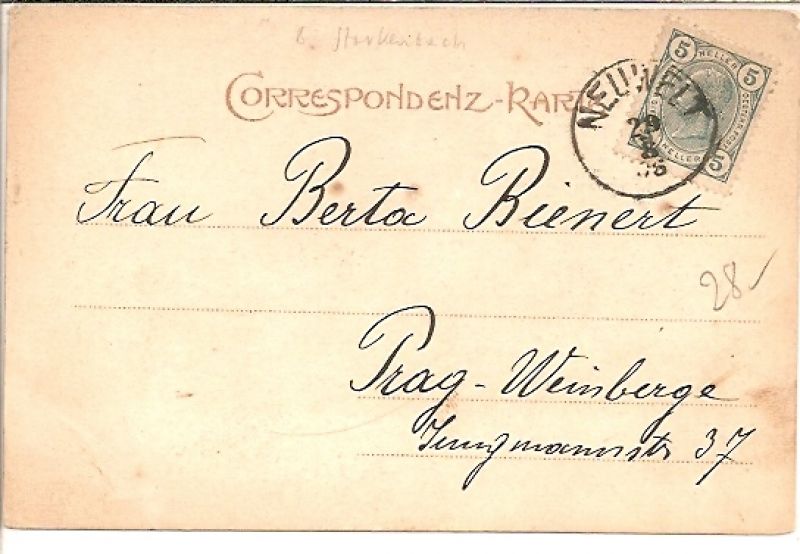 b. Starkenbach
CORRESPONDENZ-KARTE
5 HELLER 5
NEUWELT
HELLER 5
Frau Berta Bienert
28
Prag-Weinberge
Jungmannstr 37